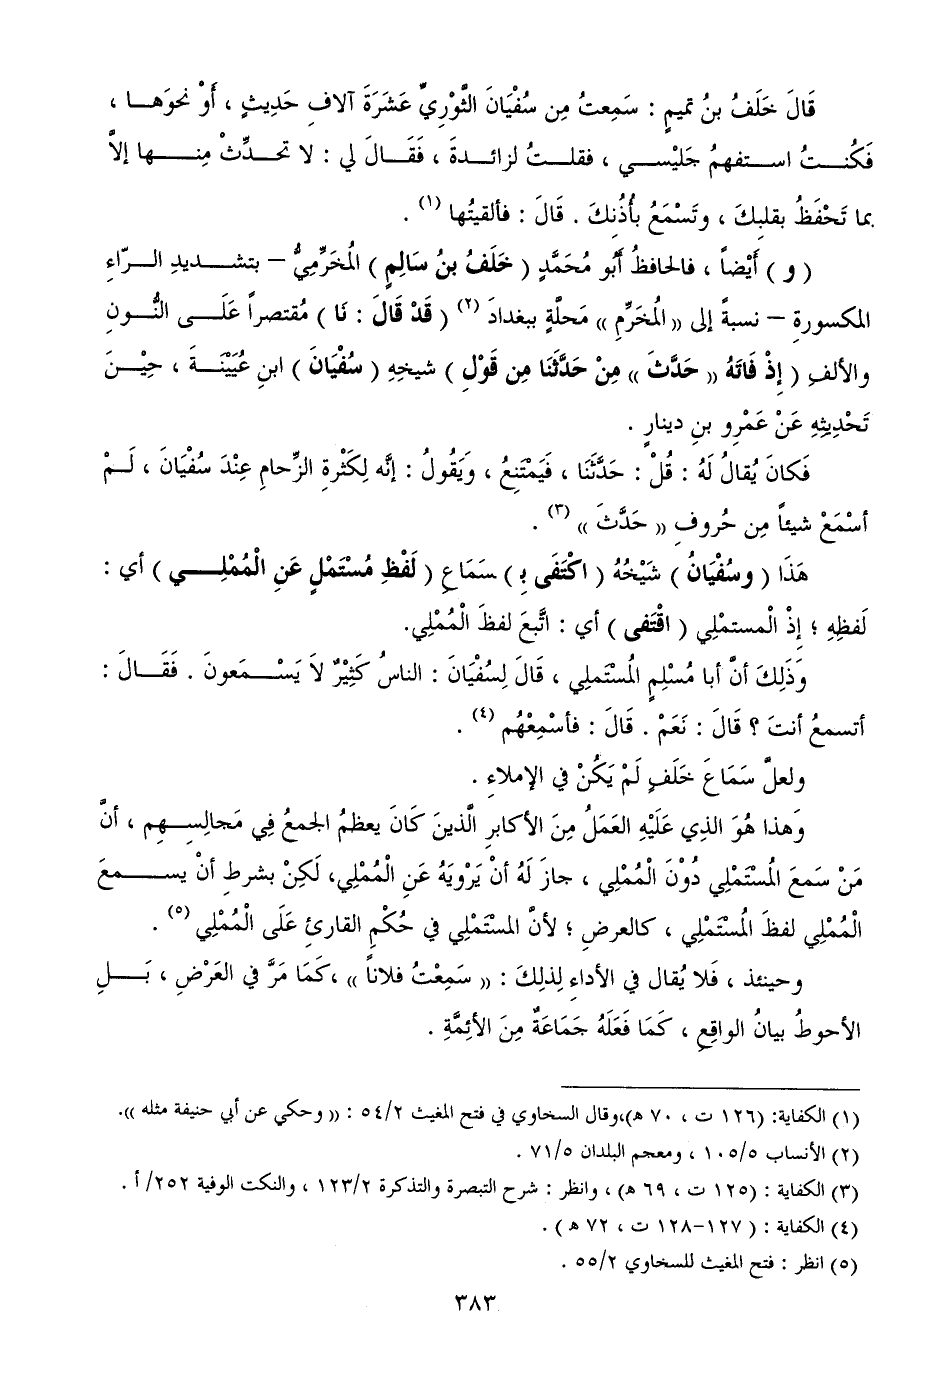 قَالَ خَلَفُ بنُ تميمٍ : سَمِعتُ مِن سُفْيَانَ الثَّوْرِيِّ عَشَرَةَ آلافِ حَدِيثٍ ، أَوْ نحوَهـا ،
فَكُنـتُ اسـتفهمُ جَليْسـي ، فقلـتُ لزائـدةَ ، فقَـالَ لي : لا تحـدِّثْ مِنـها إلاَّ
بما تَحْفَظُ بقلبِكَ ، وتَسْمَعُ بأُذُنِكَ . قَالَ : فألقيتُها (١) .
( و ) أَيْضاً ، فالحافظُ أَبُو مُحَمَّدٍ ( خَلَفُ بنُ سَالِمٍ ) المُخَرِّمِيُّ – بتشـديدِ الـرّاءِ
المكسورةِ – نسبةً إلى « المُخَرِّمِ » مَحلّة ببغدادَ (٢) ( قَدْ قَالَ : نَا ) مُقتصراً عَلَـى النُّـونِ
والألفِ ( إِذْ فَاتَهُ « حَدَّثَ » مِنْ حَدَّثَنَا مِن قَوْلِ ) شيخِهِ ( سُفْيَانَ ) ابنِ عُيَيْنَـةَ ، حِيْـنَ
تَحْدِيثِهِ عَنْ عَمْرِو بنِ دينارٍ .
فَكانَ يُقالُ لَهُ : قُلْ : حَدَّثَنَا ، فَيَمْتَنِعُ ، ويَقُولُ : إنَّه لِكَثْرةِ الزِّحامِ عِنْدَ سُفْيَانَ ، لَـمْ
أسْمَعْ شيئاً مِن حُروفِ « حَدَّثَ » (٣) .
هَذَا ( وسُفْيَانُ ) شَيْخُهُ ( اكْتَفَى بِـ ) سَمَاعِ ( لَفْظِ مُسْتَمْلٍ عَنِ الْمُمْلِـي ) أي :
لَفظِهِ ؛ إذْ الْمستمْلِي ( اقْتَفى ) أي : اتَّبعَ لفظَ الْمُمْلِي.
وَذَلِكَ أنَّ أبا مُسْلِمٍ المُسْتَملِي ، قَالَ لِسُفْيَانَ : الناسُ كَثِيْرٌ لاَ يَسْـمَعونَ . فَقَـالَ :
أتسمعُ أنتَ ؟ قَالَ : نَعَمْ . قَالَ : فأسْمِعْهُم (٤) .
ولعلَّ سَمَاعَ خَلَفٍ لَمْ يَكُنْ في الإملاءِ .
وَهذا هُوَ الذِي عَلَيْهِ العَمَلُ مِنَ الأكابرِ الَّذينَ كَانَ يعظمُ الجمعُ فِي مَجالِسِـهِم ، أنَّ
مَنْ سَمعَ المُسْتَمْلِي دُوْنَ الْمُمْلِي ، جازَ لَهُ أنْ يَرْوِيَهُ عَنِ الْمُمْلِي، لَكِنْ بشرطِ أنْ يسـمعَ
الْمُمْلِي لفظَ المُسْتَمْلِي ، كالعرضِ ؛ لأنَّ المسْتَمْلِي في حُكْمِ القارئِ عَلَى الْمُمْلِي (٥) .
وحينئذ ، فَلا يُقال في الأداءِ لِذلِكَ : « سَمِعْتُ فلاناً » ،كَمَا مَرَّ في العَرْضِ ، بَـلِ
الأحوطُ بيانُ الواقعِ ، كَمَا فَعَلَهُ جَمَاعَةٌ مِنَ الأئِمَّةِ .
(١) الكفاية: (١٢٦ ت ، ٧٠ ه)،وقال السخاوي في فتح المغيث ٥٤/٢ : « وحكي عن أبي حنيفة مثله ».
(٢) الأنساب ١٠٥/٥ ، ومعجم البلدان ٧١/٥ .
(٣) الكفاية : (١٢٥ ت ، ٦٩ ه) ، وانظر : شرح التبصرة والتذكرة ١٢٣/٢ ، والنكت الوفية ٢٥٢/ أ .
(٤) الكفاية : ( ١٢٧–١٢٨ ت ، ٧٢ ه ) .
(٥) انظر : فتح المغيث للسخاوي ٥٥/٢ .
٣٨٣